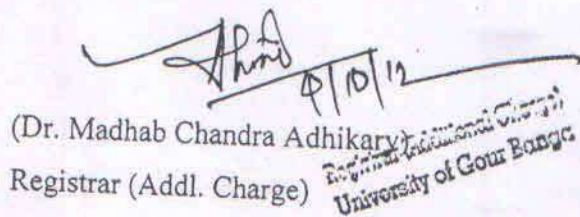 (Dr. Madhab Chandra Adhikary)
Registrar (Addl. Charge)
Registrar (Additional Charge)
University of Gour Banga